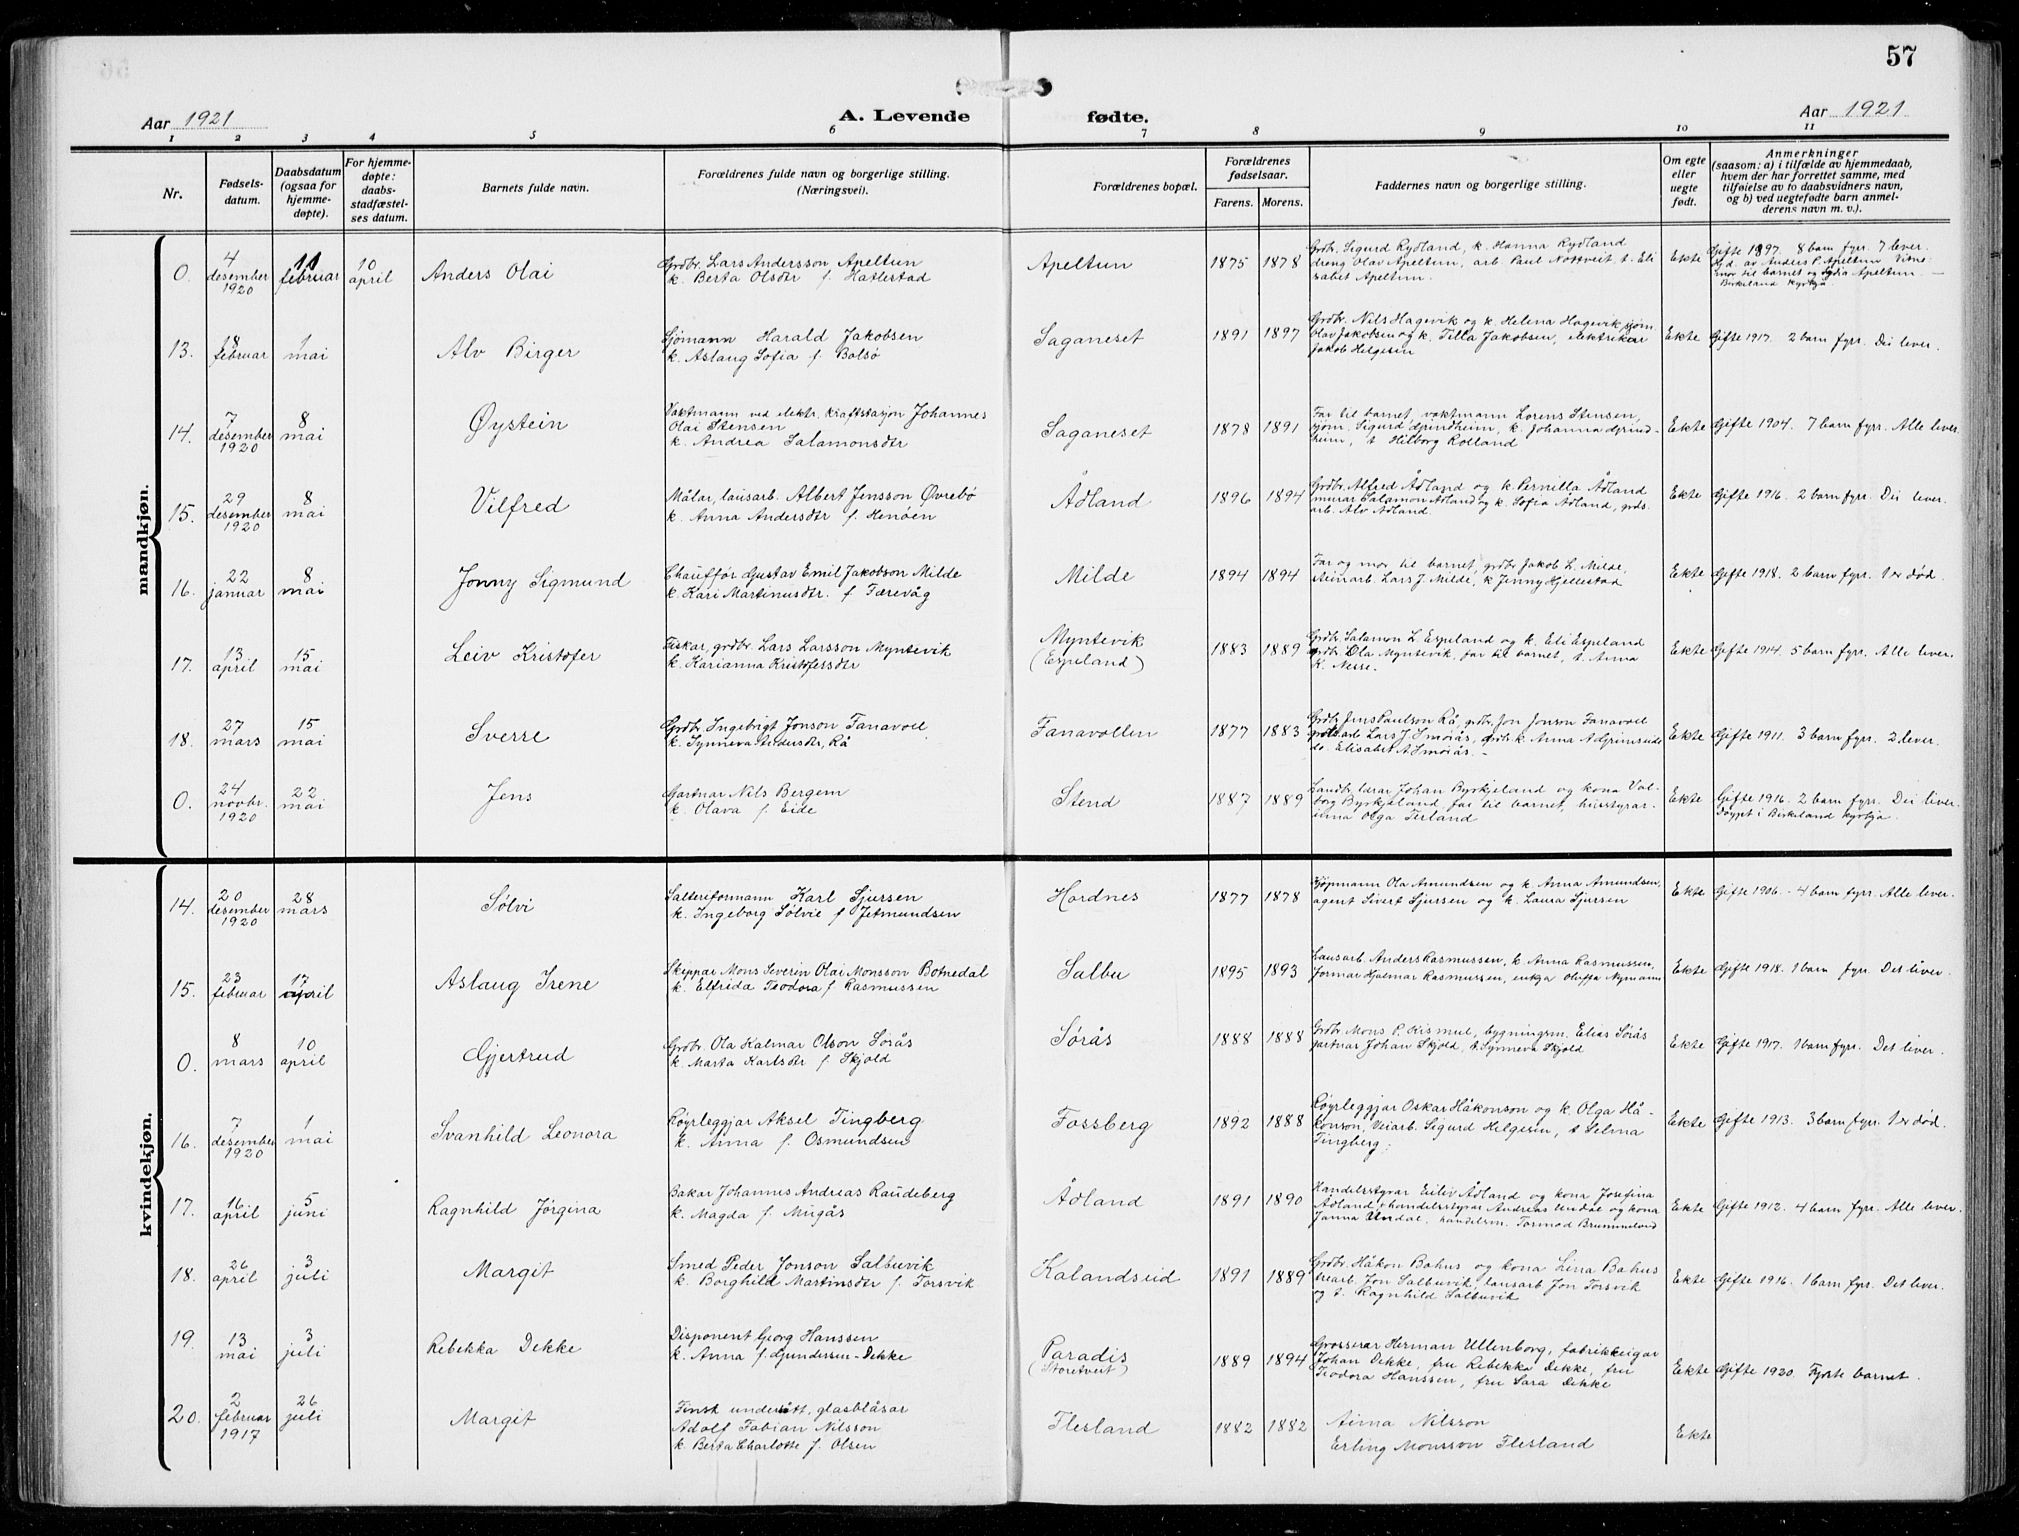 57
Aar 1921
A. Levende fødte.
Aar 1921
1 2 3 4 5 6 7 8 9 10 11
Nr.
Fødsels-
datum.
Daabsdatum
(ogsaa for
hjemme-
døpte).
For hjemme-
døpte:
daabs-
stadfæstel-
ses datum.
Barnets fulde navn.
Forældrenes fulde navn og borgerlige stilling.
(Næringsvei).
Forældrenes bopæl.
Forældrenes
fødselsaar.
Farens. Morens.
Faddernes navn og borgerlige stilling.
Om egte
eller
uegte
født.
Anmerkninger
(saasom: a) i tilfælde av hjemmedaab,
hvem der har forrettet samme, med
tilføielse av to daabsvidners navn,
og b) ved uegtefødte barn anmel-
derens navn m. v.).
mandkjøn.
0.
4
desember
1920
11
februar
10
april
Anders Olai
Grdbr. Lars Andersson Apeltun
k. Berta Olsdtr f. Hatlestad
Apeltun
1875 1878
Grdbr. Sigurd Rydland, k. Hanna Rydland
dreng Olav Apeltun, arb. Paul Nøttveit, t. Eli
sabet Apeltun.
Ekte
Gifte 1897. 8 barn fyrr. 7 lever.
Hjd. av Anders P. Apeltun Vitne
mor til barnet og Lydia Apeltun. —
Birkeland kyrkja.
13.
18
februar
1
mai
Alv Birger
Sjømann Harald Jakobsen
k. Aslaug Sofia f. Bolsø
Saganeset
1891 1897
Grdbr. Nils Hagevik og k. Helena Hagevik, sjøm.
Olav Jakobsen og k. Tilla Jakobsen, elektrikar
Jakob Helgesen
Ekte
Gifte 1917. 2 barn fyrr. Dei lever.
14.
7
desember
1920
8
mai
Øystein
Vaktmann ved elektr. kraftstasjon Johannes
Olai Stensen
k. Andrea Salamonsdtr
Saganeset
1878 1891
Far til barnet, vaktmann Lorens Stensen,
sjøm. Sigurd Grindheim, k. Johanna Grind-
heim, t. Hilborg Rolland
Ekte
Gifte 1904. 7 barn fyrr. Alle lever.
15.
29
desember
1920
8
mai
Vilfred
Målar, lausarb. Albert Jensson Øvrebø
k. Anna Andersdtr f. Henøen
Ådland
1896 1894
Grdbr. Alfred Ådland og k. Pernilla Ådland
murar Salamon Ådland og k. Sofia Ådland, grds.
arb. Alv Ådland.
Ekte
Gifte 1916. 2 barn fyrr. Dei lever.
16.
22
januar
8
mai
Jonny Sigmund
Chauffør Gustav Emil Jakobson Milde
k. Kari Martinusdtr. f. Færevåg
Milde
1894 1894
Far og mor til barnet, grdbr Jakob L. Milde,
steinarb. Lars J. Milde, k. Jenny Hjellestad
Ekte
Gifte 1918. 2 barn fyrr. 1 er død.
17.
13
april
15
mai
Leiv Kristofer
Fiskar, grdbr. Lars Larsson Myntevik
k. Karianna Kristofersdtr
Myntevik
(Espeland)
1883 1889
Grdbr. Salamon L. Espeland og k. Eli Espeland
grdbr. Ola Myntevik, far til barnet, t. Anna
K. Nesse.
Ekte
Gifte 1914. 5 barn fyrr. Alle lever.
18.
27
mars
15
mai
Sverre
Grdbr. Ingebrigt Jonson Fanavoll
k. Synneva Andersdtr, Rå
Fanavollen
1877 1883
Grdbr. Jens Paulson Rå, grdbr. Jon Jonson Fanavoll
grdsarb Lars J Smørås, grdb. k. Anna A Grimseide
do. Elisabet A Smørås. —
Ekte
Gifte 1911. 3 barn fyrr. 2 lever.
0.
24
novbr.
1920
22
mai
Jens
Gartnar Nils Bergem
k. Olava f. Eide
Stend
1887 1889
Landbr. lærar Johan Byrkjeland og kona Val-
borg Byrkjeland, far til barnet, husstyrar-
inna Olga Terland
Ekte
Gifte 1916. 2 barn fyrr. Dei liver.
Døypt i Birkeland kyrkja.
kvindekjøn.
14.
20
desember
1920
28
mars
Sølvi
Salteriformann Karl Sjursen
k. Ingeborg Sølvie f. Jetmundsen
Hordnes
1877 1878
Kjøpmann Ola Amundsen og k. Anna Amundsen,
agent Sivert Sjursen og k. Laura Sjursen
Ekte
Gifte 1906. - 4 barn fyrr. Alle lever.
15.
23
februar
17
april
Aslaug Irene
Skippar Mons Severin Olai Monsson Botnedal
k. Elfrida Teodora f. Rasmussen
Salbu
1895 1893
Lausarb. Anders Rasmussen, k. Anna Rasmussen,
formar Hjalmar Rasmussen, enkja Oluffa Nymann
Ekte
Gifte 1918. 1 barn fyrr. Det liver.
0.
8
mars
10
april
Gjertrud
Grdbr. Ola Kalmar Olson Sørås
k. Marta Karlsdtr f. Skjold
Sørås
1888 1888
Grdbr. Mons P. Krismul, bygningsm. Elias Sørås
gartnar Johan Skjold, t. Synneva Skjold
Ekte
Gifte 1917. 1 barn fyrr. Det liver.
16.
7
desember
1920
1
mai
Svanhild Leonora
Røyrleggjar Aksel Tingberg
k. Anna f. Osmundsen
Fossberg
1892 1888
Røyrleggjar Oskar Håkonson og k. Olga Hå-
konson, Veiarb. Sigurd Helgesen, t. Selma
Tingberg.
Ekte
Gifte 1913. 3 barn fyrr. 1 er død.
17.
16
april
5
juni
Ragnhild Jørgina
Bakar Johannes Andreas Raudeberg
k. Magda f. Mugås
Ådland
1891 1890
Handelsstyrar Eiliv Ådland og kona Josefina
Ådland, handelsstyrar Andreas Undal og kona
Janna Undal, handelsm. Tormod Brummeland
Ekte
Gifte 1912. 4 barn fyrr. Alle liver.
18.
26
april
3
juli
Margit
Smed Peder Jonson Salbuvik
k. Borghild Martinsdtr f. Torsvik
Kalandseid
1891 1889
Grdbr. Håkon Bahus og kona Lina Bahus
trearb. Jon Salbuvik, lausarb Jon Torsvik
og t. Ragnhild Salbuvik
Ekte
Gifte 1916. 1 barn fyrr. Det liver.
19.
13
mai
3
juli
Rebekka Dekke
Disponent Georg Hanssen
k. Anna f. Gundersen-Dekke
Paradis
(Storetveit)
1889 1894
Grosserar Herman Ullenborg, fabrikkeigar
Johan Dekke, fru Rebekka Dekke, fru
Teodora Hanssen, fru Sara Dekke
Ekte
Gifte 1920. Fyrste barnet.
20.
2
februar
1917
26
juli
Margit
Finsk undersått, glasblåsar
Adolf Fabian Nilsson
k. Berta Charlotte f. Olsen
Flesland
1882 1882
Aina Nilsson
Erling Monsson Flesland
Ekte